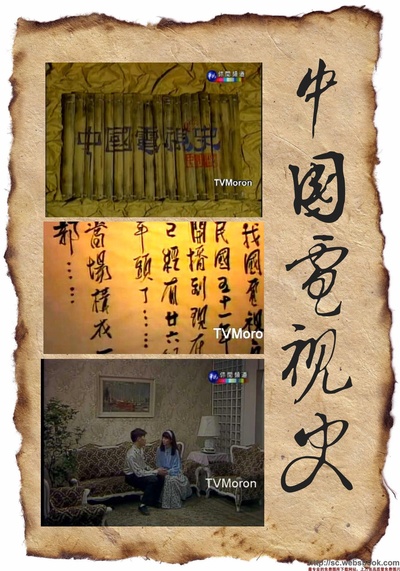 中國電視史
休閒頻道
中國電視史
TVMoron
我國電視
民國五十一年
開播到現在
已經有廿六
年頭了……
當場
都……
TVMoron
休閒頻道
TVMoron
http://sc.websbook.com